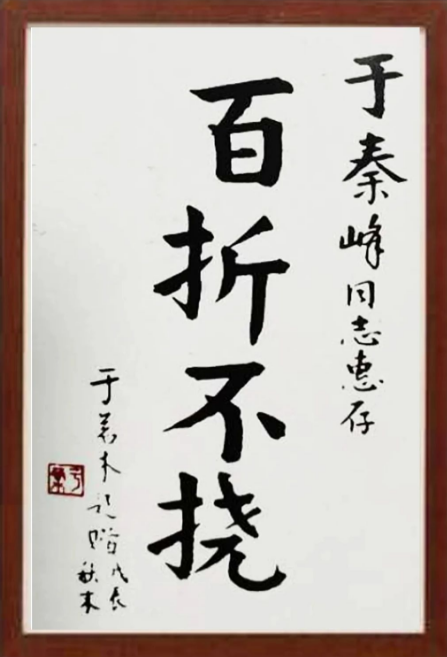 于秦峰同志惠存
百折不挠
于若木题赠
戊辰秋末